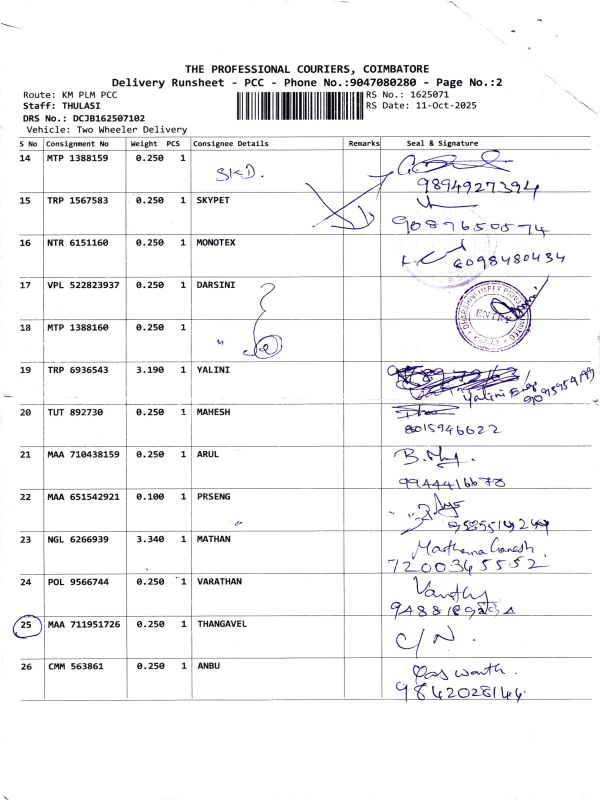 THE PROFESSIONAL COURIERS, COIMBATORE
Delivery Runsheet - PCC - Phone No.:9047080280 - Page No.:2
Route: KM PLM PCC RS No.: 1625071
Staff: THULASI RS Date: 11-Oct-2025
DRS No.: DCJB162507102
Vehicle: Two Wheeler Delivery
S No Consignment No Weight PCS Consignee Details Remarks Seal & Signature
14 MTP 1388159 0.250 1
9894927394
15 TRP 1567583 0.250 1 SKYPET
9087650574
16 NTR 6151160 0.250 1 MONOTEX
6098480434
17 VPL 522823937 0.250 1 DARSINI
ENTRY
18 MTP 1388160 0.250 1
19 TRP 6936543 3.190 1 YALINI
Yalini
20 TUT 892730 0.250 1 MAHESH
8015946622
21 MAA 710438159 0.250 1 ARUL
9944416678
22 MAA 651542921 0.100 1 PRSENG
23 NGL 6266939 3.340 1 MATHAN
7200345552
24 POL 9566744 0.250 1 VARATHAN
25 MAA 711951726 0.250 1 THANGAVEL
C/N.
26 CMM 563861 0.250 1 ANBU
9842028144